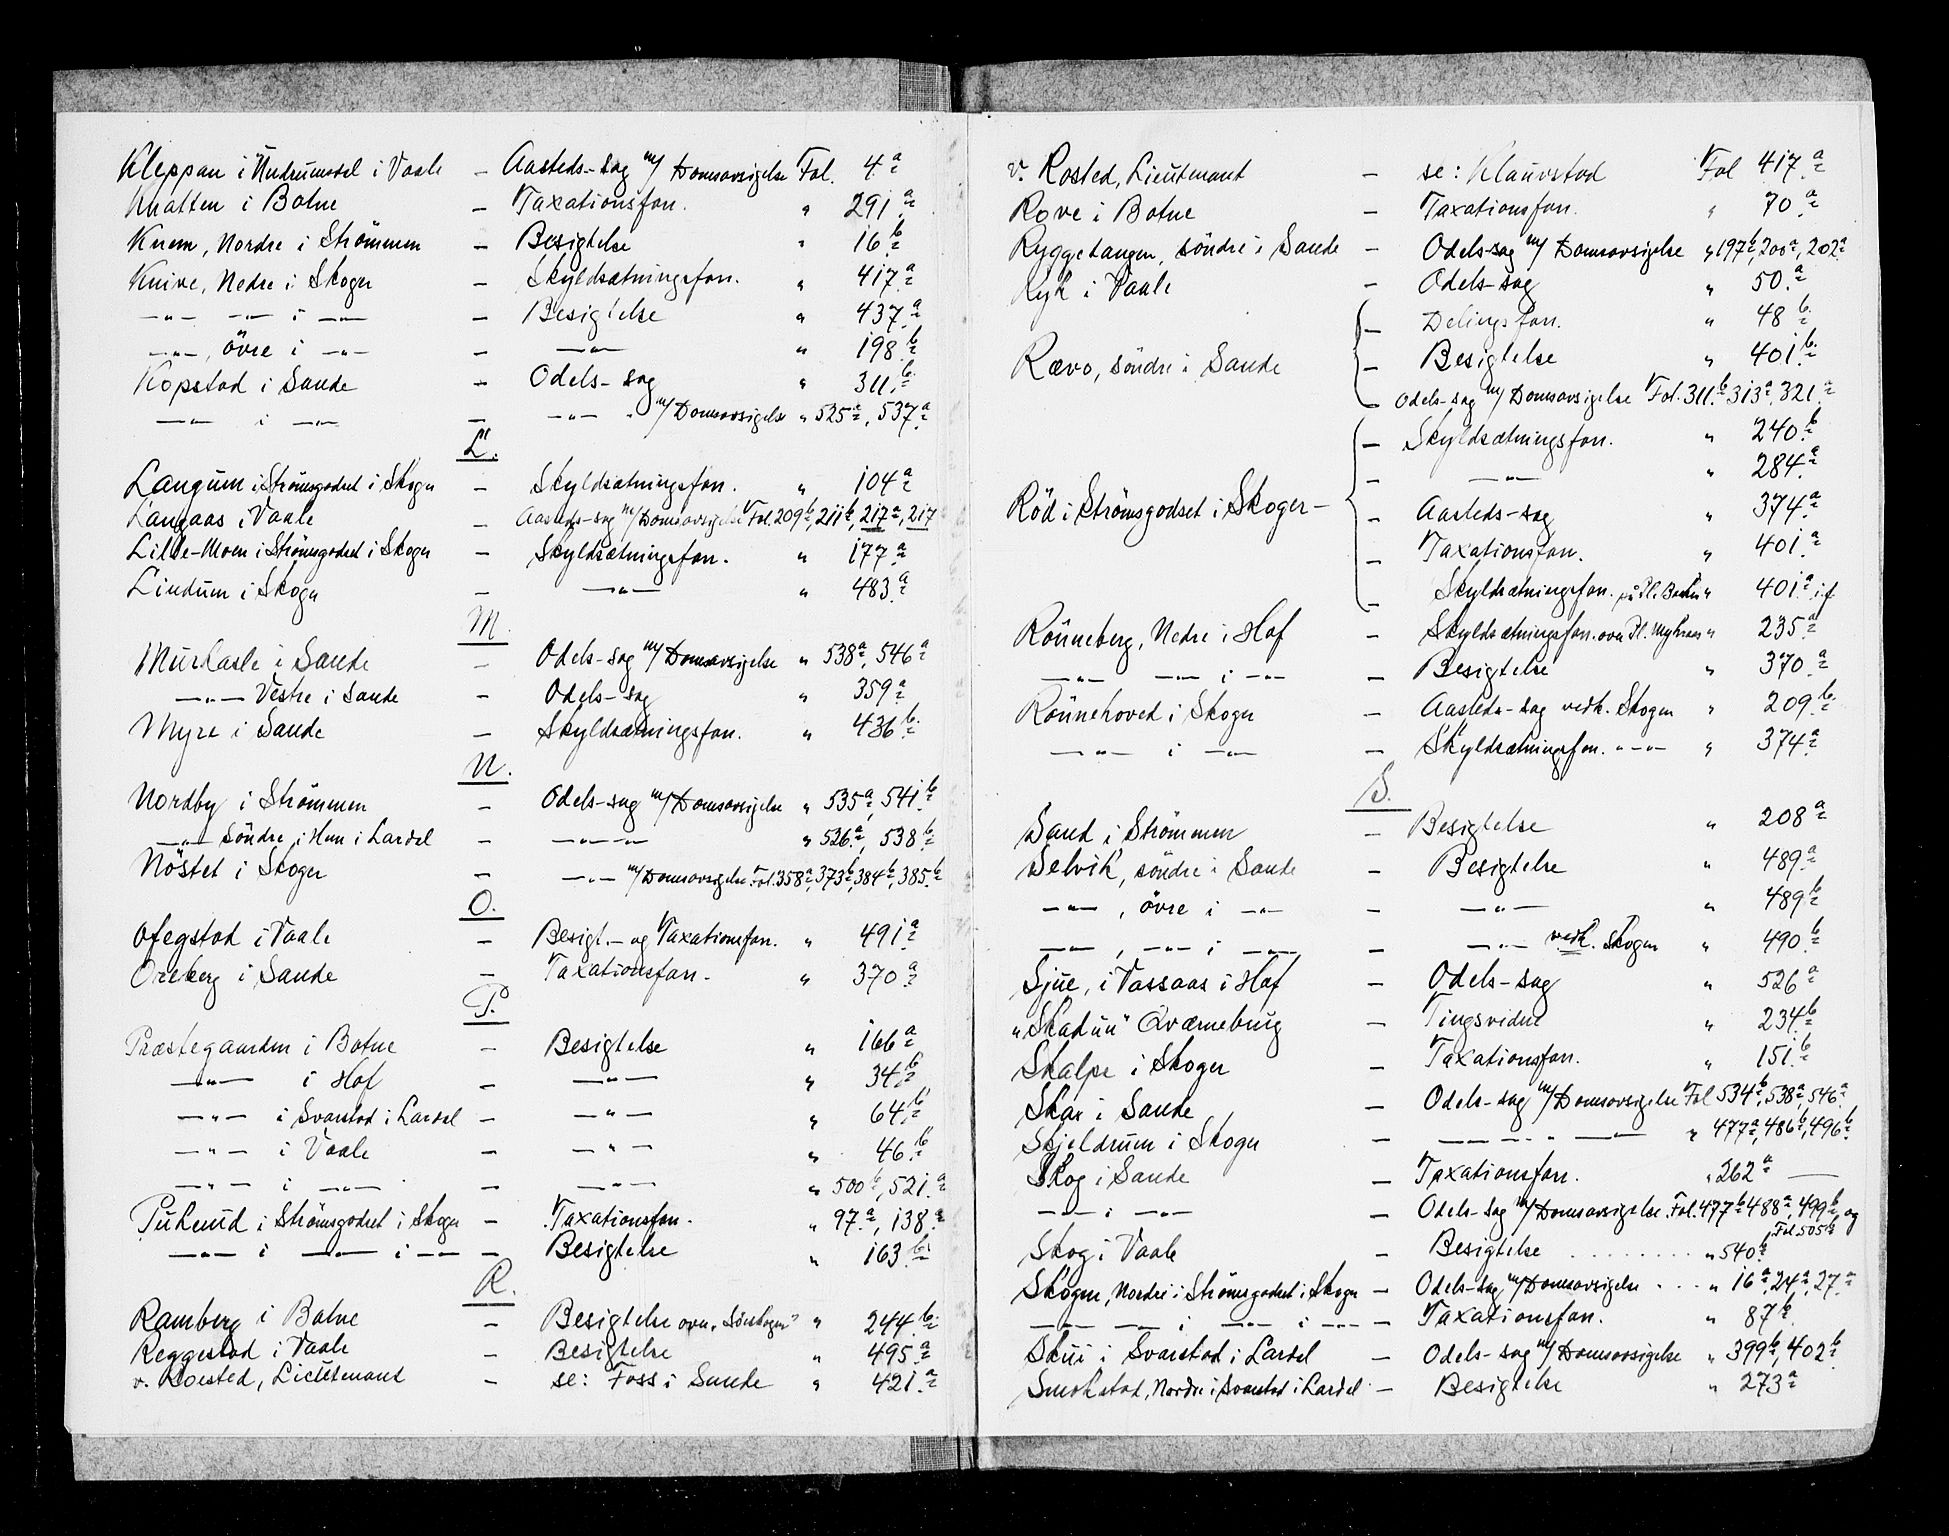 Kleppan i Undrumsdal i Vaale – Aasteds-sag m/ Domsavsigelse Fol. 4.a
Knatten i Botne – Taxationsforr. " 291.a
Knem, Nordre i Strömmen – Besigtelse " 16.b
Knive, Nedre i Skoger – Skyldsætningsforr. " 417.a
—"— —"— i —"— – Besigtelse " 437.a
—"—, övre i —"— – —"— " 198.b
Kopstad i Sande – Odels-sag " 311.b
—"— i —"— – —"— " m/ Domsavsigelse " 525.a, 537.a
L.
Langum i Strömsgodset i Skoger – Skyldsætningsforr. " 104.a
Langaas i Vaale – Aasteds-sag m/ Domsavsigelse Fol. 209.b, 211.b, 217.a, 217
Lille-Moen i Strömsgodset i Skoger – Skyldsætningsforr. " 177.a
Lindum i Skoger – —"— " 483.a
M.
Murlasle i Sande – Odels-sag m/ Domsavsigelse " 538.a, 546.a
—"— Vestre i Sande – Odels-sag " 359.a
Myre i Sande – Skyldsætningsforr. " 436.b
N.
Nordby i Strömmen – Odels-sag m/ Domsavsigelse " 535.a, 541.b
—"— Söndre, i Hem i Lardal – —"—"— " 526.a, 538.b
Nöstet i Skoger – —"— m/ Domsavsigelse. Fol. 358.a, 373.b, 384.b, 385.b
O.
Ofegstad i Vaale – Besigt.- og Taxationsforr. " 491.a
Oreberg i Sande – Taxationsforr. " 370.a
P.
Præstegaarden i Botne – Besigtelse " 166.a
—"— i Hof – —"— " 34.b
—"— i Svarstad i Lardal – —"— " 64.b
—"— i Vaale – —"— " 46.b
—"— i —"— – —"— " 500.b, 521.a
Pukerud i Strömsgodset i Skoger – Taxationsforr. " 97.a, 138.a
—"— i —"— i —"— – Besigtelse " 163.b
R.
Ramberg i Botne – Besigtelse over "Sörskogen" " 244.b
Reggestad i Vaale – Besigtelse " 495.a
v. Roested, Lieutenant – se: Foss i Sande " 421.a
v. Rosted, Lieutenant – se: Klaurstad Fol 417.a
Rove i Botne – Taxationsforr. " 70.a
Ryggetangen, söndre i Sande – Odels-sag m/ Domsavsigelse " 197.b, 200.a, 202.a
Ryk i Vaale – Odels-sag " 50.a
– Delingsforr. " 48 b.
Rævo, söndre i Sande – Besigtelse " 401.b
– Odels-sag m/ Domsavsigelse Fol. 311.b 313.a, 321.a
– Skyldsætningsforr. " 240.b
– —"— " 284.a
Röd i Strömsgodset i Skoger – – Aasteds-sag " 374.a
– Taxationsforr. " 401.a
– Skyldsætningsforr. " 401.a i.f
Rönneberg, Nedre i Hof – Skyldsætningsforr. over Pl. Myhren " 235.a
—"— —"— i —"— – Besigtelse " 370.a
Rönnehoved i Skoger – Aasteds-sag vedk. Skogen " 209.b
—"— i —"— – Skyldsætningsforr. "—"— " 374.a
S.
Sand i Strömmen – Besigtelse " 208 a
Selvik, söndre i Sande – Besigtelse " 489.a
—"—, övre i —"— – —"— " 489.b
—"—, —"— i —"— – —"— vedk. Skogen " 490.b
Sjue, i Vassaas i Hof – Odels-sag " 526 a
"Skaduu" Qværnebrug – Tingsvidne " 234.b
Skalpe i Skoger – Taxationsforr. " 151.b
Skar i Sande – Odels-sag m/ Domsavsigelse Fol 534.b, 538.a, 546.a
Skjeldrum i Skoger – —"—"— " —"— " 477.a, 486.b, 496.b
Skog i Sande – Taxationsforr. " 262 a —
—"— i —"— – Odels-sag m/ Domsavsigelse. Fol. 477.b 488.a, 499.b, og
Fol. 505.b
Skog i Vaale – Besigtelse . . . . . . . . " 540.b
Skogen, Nordre i Strömsgodset i Skoger – Odels-sag m/ Domsavsigelse . . . " 16.a, 24.a, 27.a
—"— —"— i —"— i —"— – Taxationsforr. " 87.b
Skui i Svarstad i Lardal – Odels-sag m/ Domsavsigelse " 399.b, 402.b
Smokstad, Nordre i Svarstad i Lardal – Besigtelse " 273.a